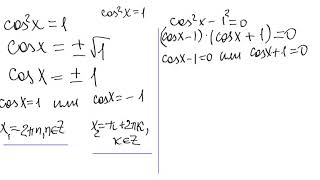 cos²x=1
cos²x=1
cosx=±√1
cosx=±1
cosx=1 или cosx=-1
x₁=2πn, n∈Z
x₂=π+2πk,
k∈Z
cos²x-1²=0
(cosx-1)·(cosx+1)=0
cosx-1=0 или cosx+1=0